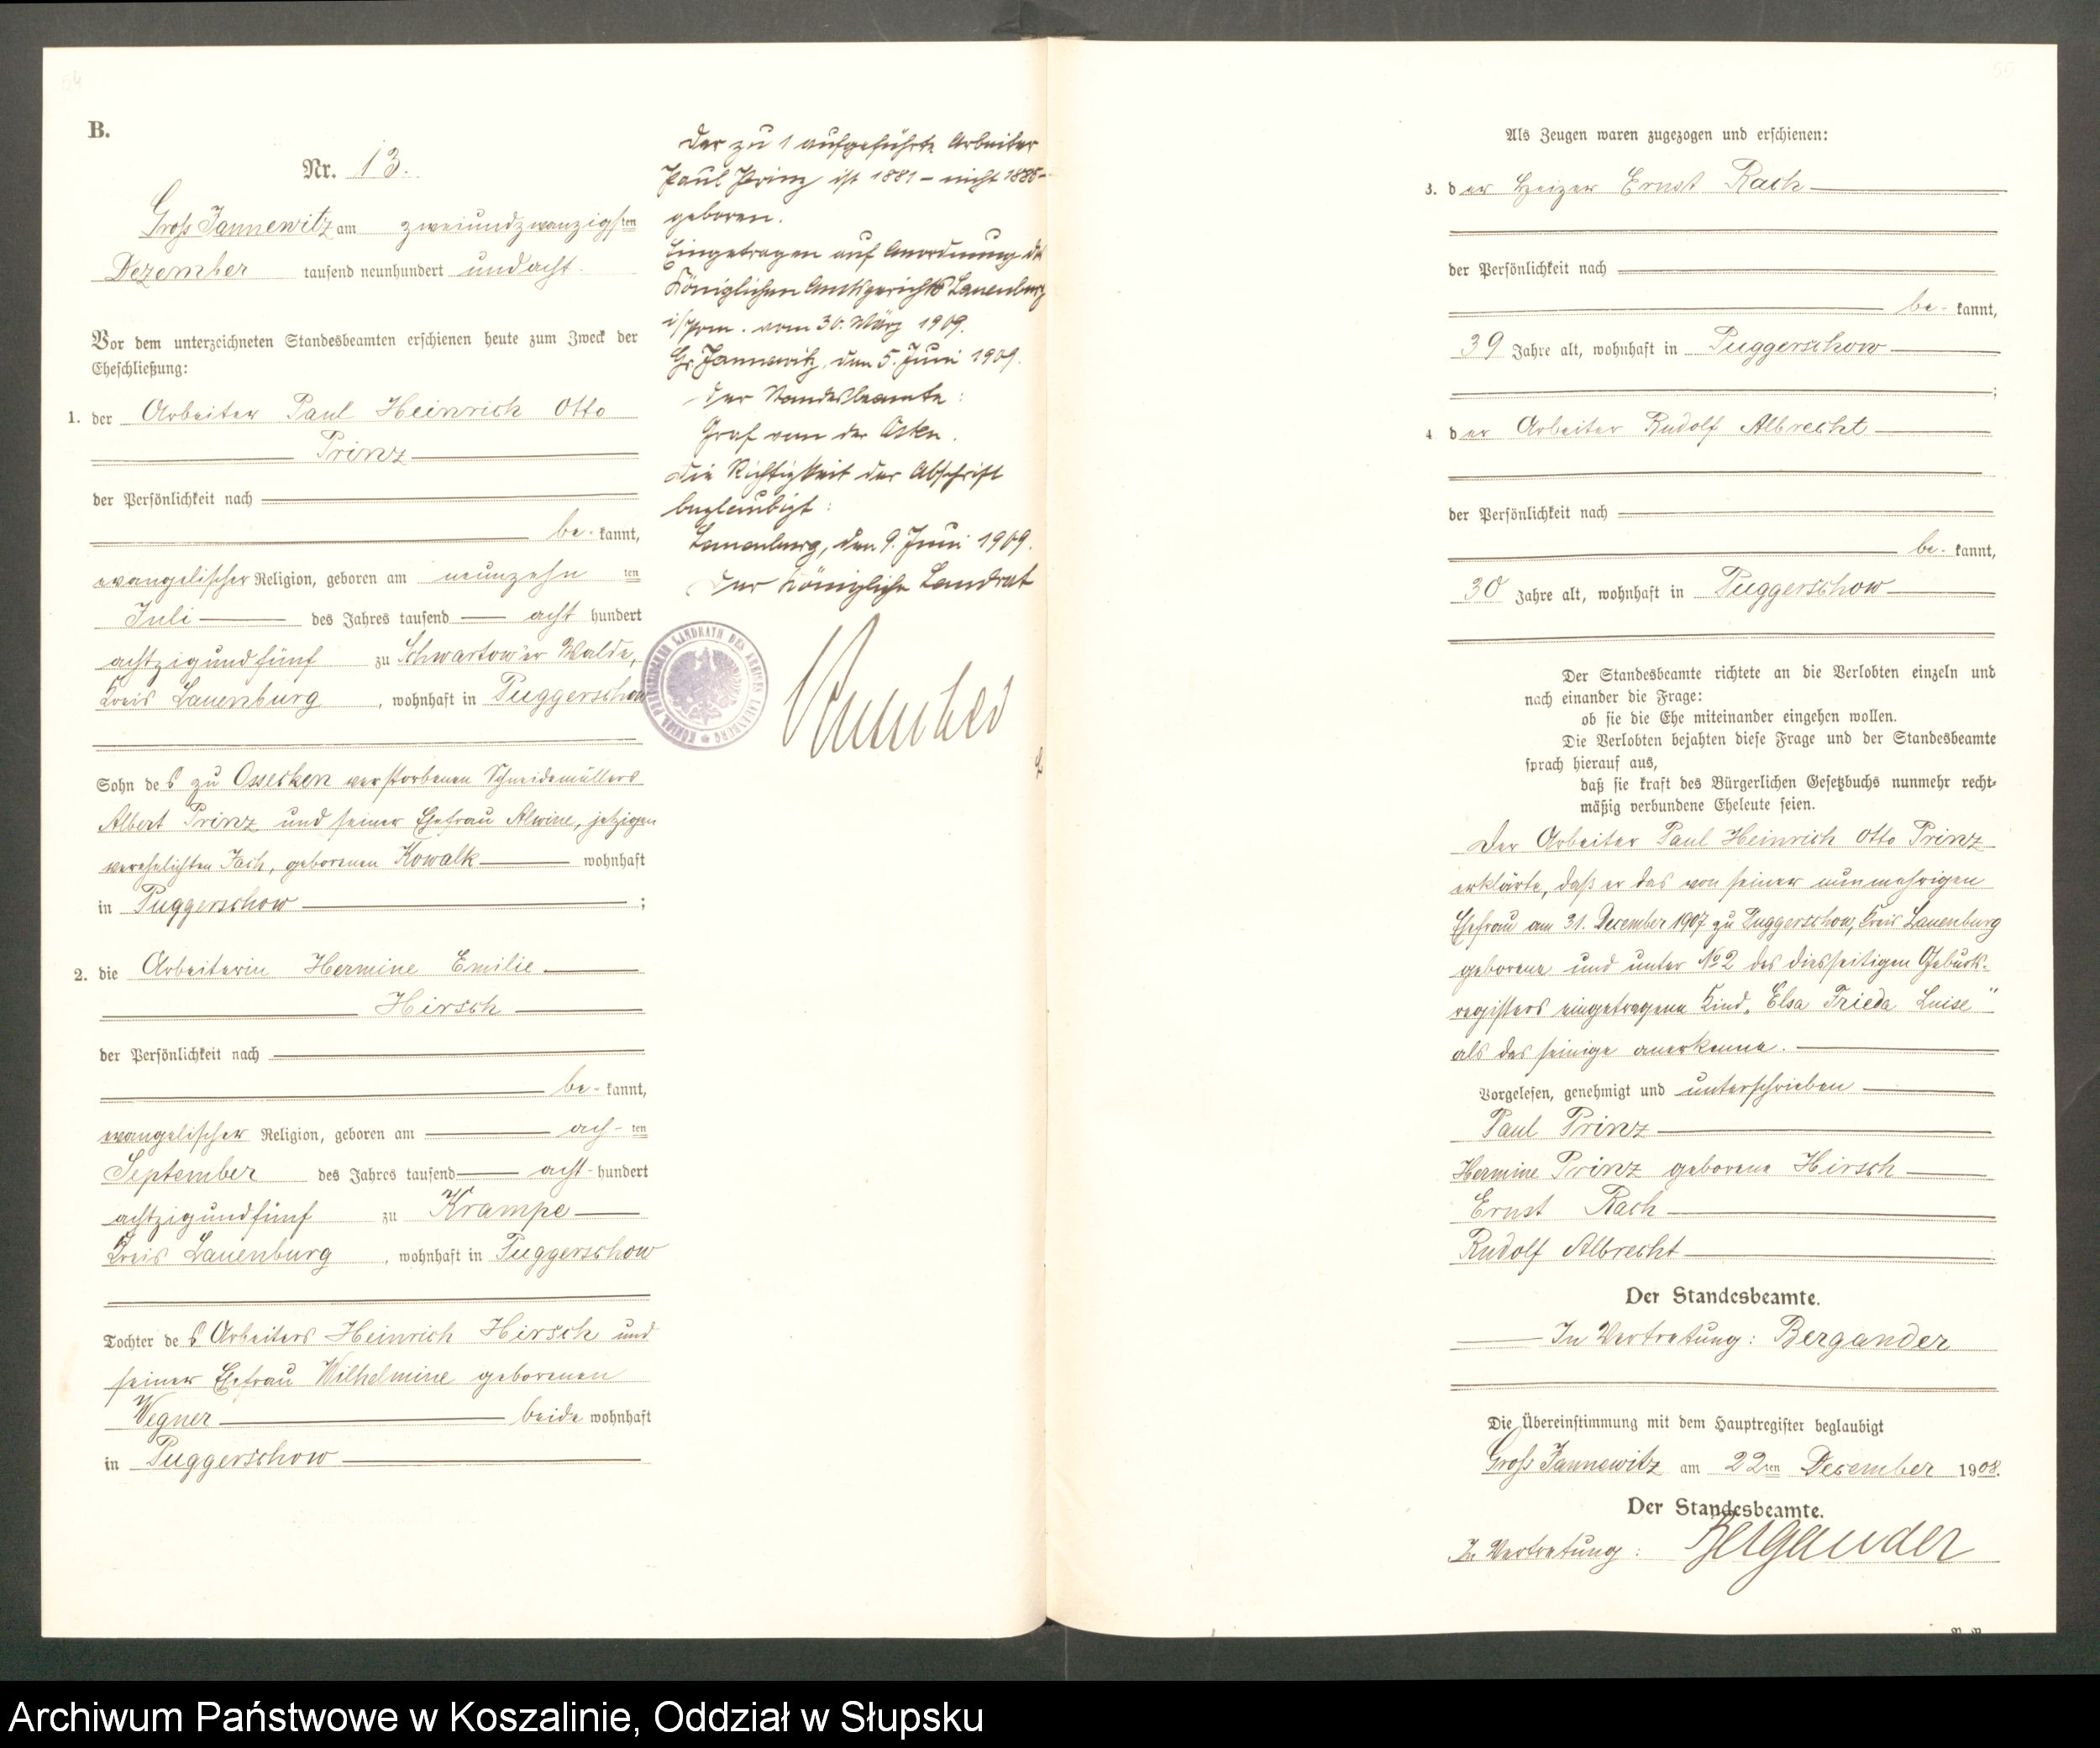 54
B.
Nr. 13.
Groß Jannewitz am zweiundzwanzigsten
Dezember tausend neunhundert und acht.
Vor dem unterzeichneten Standesbeamten erschienen heute zum Zweck der
Eheschließung:
1. der Arbeiter Paul Heinrich Otto
Prinz
der Persönlichkeit nach
be- kannt,
evangelischer Religion, geboren am neunzehn ten
Juli des Jahres tausend acht hundert
achtzig und fünf zu Schwartow'er Walde,
Kreis Lauenburg, wohnhaft in Puggerschow
Sohn des zu Ossecken verstorbenen Schneidemüllers
Albert Prinz und seiner Ehefrau Alwine, jetzigen
verehelichten Jach, geborenen Kowalk wohnhaft
in Puggerschow ;
2. die Arbeiterin Hermine Emilie
Hirsch
der Persönlichkeit nach
be- kannt,
evangelischer Religion, geboren am ach- ten
September des Jahres tausend acht- hundert
achtzig und fünf zu Krampe
Kreis Lauenburg, wohnhaft in Puggerschow
Tochter des Arbeiters Heinrich Hirsch und
seiner Ehefrau Wilhelmine geborenen
Wegner beide wohnhaft
in Puggerschow
Der zu 1 aufgeführte Arbeiter
Paul Prinz ist 1881 - nicht 1885 -
geboren.
Eingetragen auf Anordnung des
Königlichen Amtsgerichts Lauenburg
i/Pom. vom 30. März 1909.
Gr. Jannewitz, den 5. Juni 1909.
Der Standesbeamte:
Graf von der Osten.
Die Richtigkeit der Abschrift
beglaubigt:
Lauenburg, den 9. Juni 1909.
Der Königliche Landrat
KÖNIGL. PREUSSISCHER LANDRATH DES KREISES LAUENBURG
55
Als Zeugen waren zugezogen und erschienen:
3. der Heizer Ernst Rach
der Persönlichkeit nach
be- kannt,
39 Jahre alt, wohnhaft in Puggerschow
;
4 der Arbeiter Rudolf Albrecht
der Persönlichkeit nach
be- kannt,
30 Jahre alt, wohnhaft in Puggerschow
Der Standesbeamte richtete an die Verlobten einzeln und
nach einander die Frage:
ob sie die Ehe miteinander eingehen wollen.
Die Verlobten bejahten diese Frage und der Standesbeamte
sprach hierauf aus,
daß sie kraft des Bürgerlichen Gesetzbuchs nunmehr recht-
mäßig verbundene Eheleute seien.
Der Arbeiter Paul Heinrich Otto Prinz
erklärte, daß er das von seiner nunmehrigen
Ehefrau am 31. December 1907 zu Puggerschow, Kreis Lauenburg
geborene und unter No 2 des diesseitigen Geburts-
registers eingetragene Kind „Elsa Frieda Luise"
als das seinige anerkenne.
Vorgelesen, genehmigt und unterschrieben
Paul Prinz
Hermine Prinz geborene Hirsch
Ernst Rach
Rudolf Albrecht
Der Standesbeamte.
In Vertretung: Bergander
Die Übereinstimmung mit dem Hauptregister beglaubigt
Groß Jannewitz am 22ten December 1908.
Der Standesbeamte.
In Vertretung: Bergander
Archiwum Państwowe w Koszalinie, Oddział w Słupsku